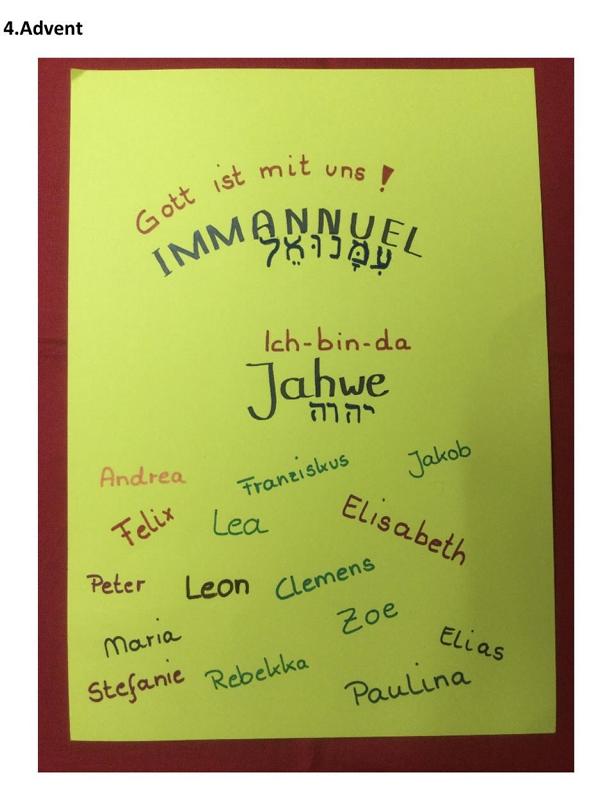 4.Advent
Gott ist mit uns!
IMMANNUEL
עִמָּנוּאֵל
Ich-bin-da
Jahwe
יהוה
Andrea Franziskus Jakob
Felix Lea Elisabeth
Peter Leon Clemens
Maria Zoe Elias
Stefanie Rebekka Paulina